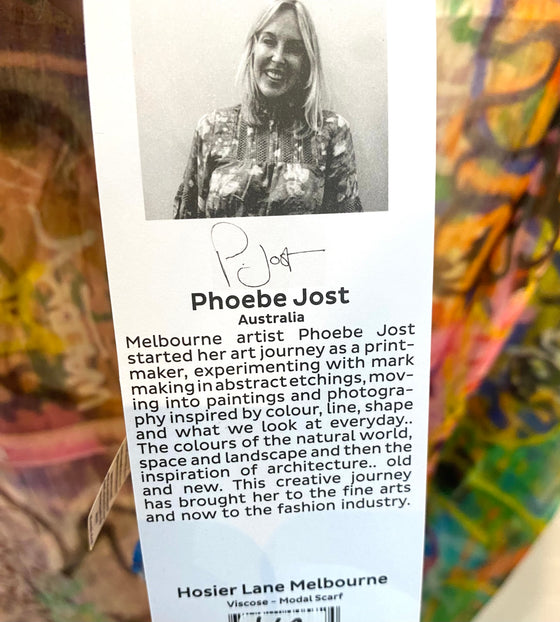 P. Jost
Phoebe Jost
Australia
Melbourne artist Phoebe Jost
started her art journey as a print-
maker, experimenting with mark
making in abstract etchings, mov-
ing into paintings and photogra-
phy inspired by colour, line, shape
and what we look at everyday..
The colours of the natural world,
space and landscape and then the
inspiration of architecture.. old
and new. This creative journey
has brought her to the fine arts
and now to the fashion industry.
Hosier Lane Melbourne
Viscose - Modal Scarf